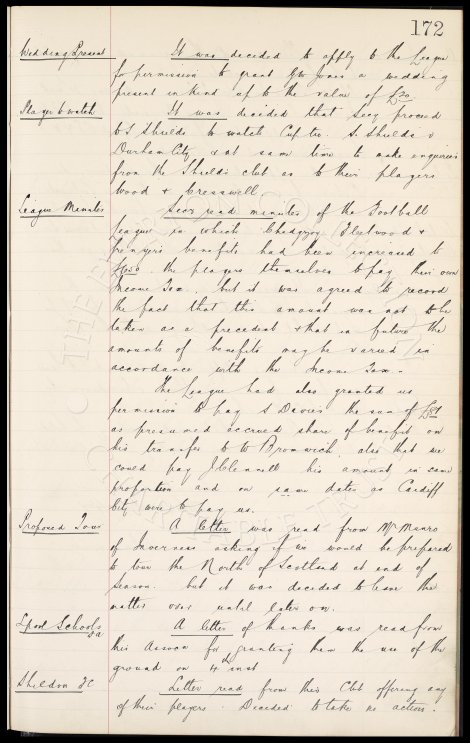 172
Wedding Present It was decided to apply to the League
for permission to grant Geo Wass a wedding
present in kind up to the value of £20
Player to watch It was decided that Secy proceed
to S Shields to watch Cup tie. S. Shields v
Durham City & at same time to make enquiries
from the Shields club as to their players
Wood & Cresswell.
League Minutes Secy read minutes of the Football
League in which Chedgzoy Fleetwood &
Grenyers benefits had been increased to
£650. the players themselves to pay their own
Income Tax. but it was agreed to record
the fact that this amount was not to be
taken as a precedent & that in future the
amounts of benefits may be varied in
accordance with the Income Tax.
The League had also granted us
permission to pay S Davies the sum of
as presumed accrued share of benefit on
his transfer to W Bromwich, also that we
could pay J Clennell his amount in same
proportion and on same dates as Cardiff
City were to pay us.
Proposed Tour A letter was read from Mr Munro
of Inverness asking if we would be prepared
to tour the North of Scotland at end of
Season. but it was decided to leave the
matter over until later on.
Lpool Schools
FA A letter of thanks was read from
this Assocn for granting them the use of the
ground on 4th inst
Shildon FC Letter read from this Club offering any
of their players. Decided to take no action.